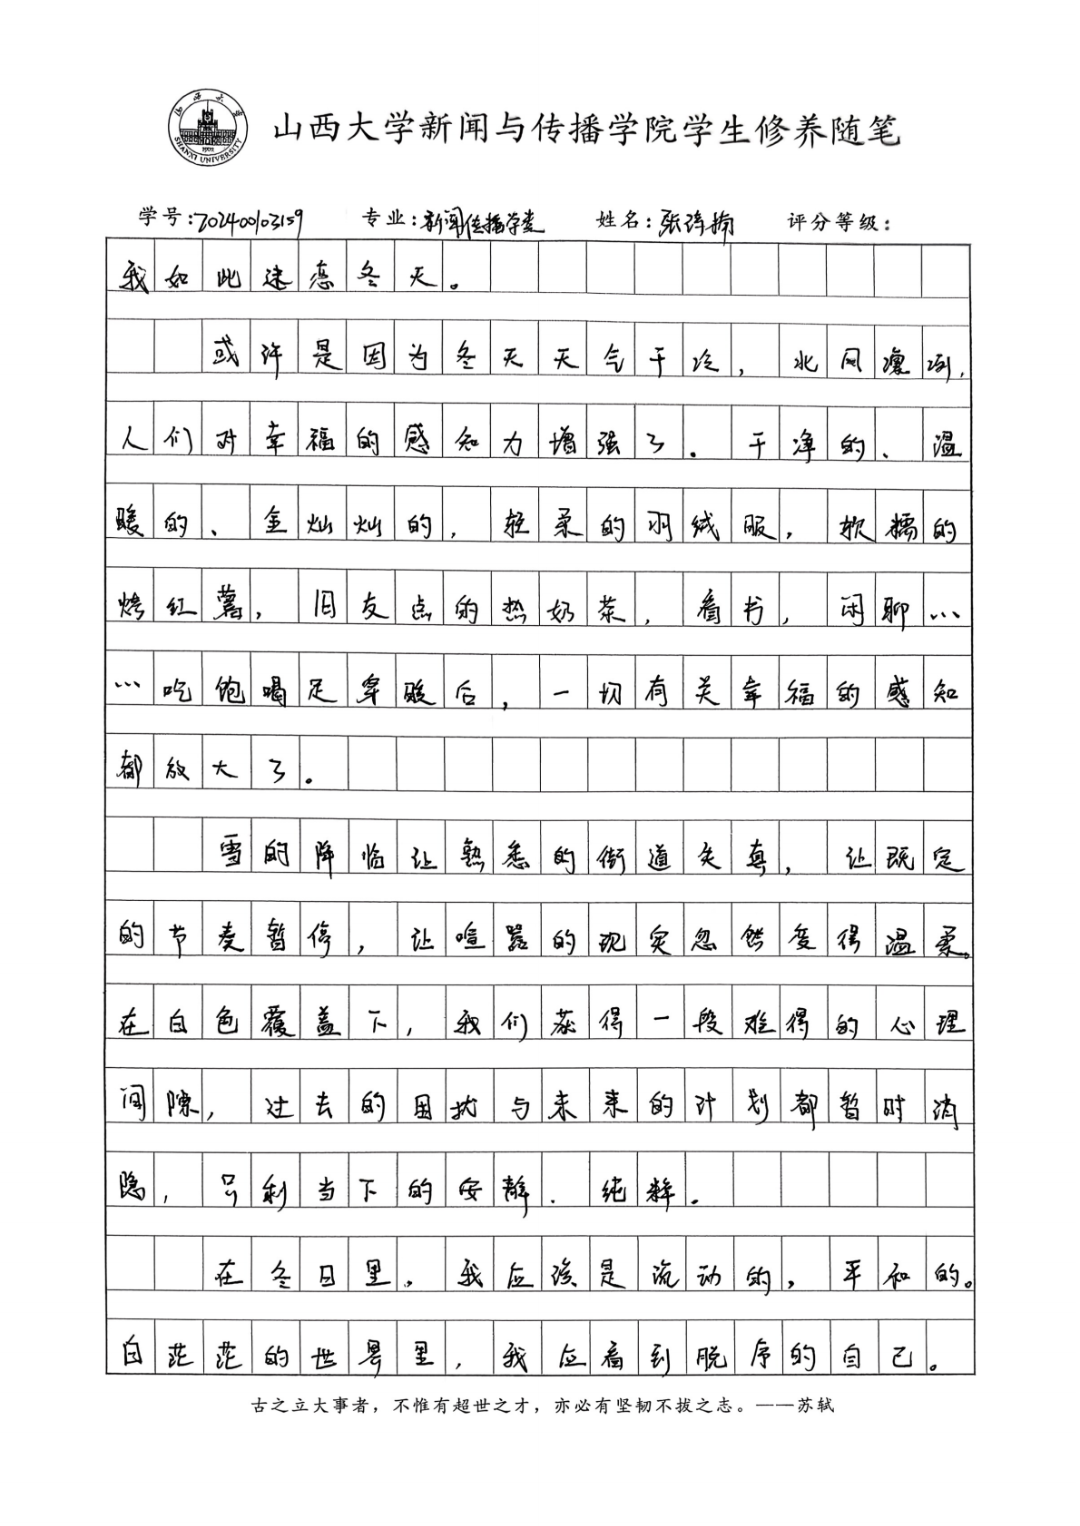 山西大学
SHANXI UNIVERSITY
1902
山西大学新闻与传播学院学生修养随笔
学号:202400103159 专业:新闻传播学类 姓名: 评分等级:
我如此迷恋冬天。
或许是因为冬天天气干冷，北风凛冽，
人们对幸福的感知力增强了。干净的、温
暖的、金灿灿的，轻柔的羽绒服，软糯的
烤红薯，旧友点的热奶茶，看书，闲聊…
…吃饱喝足穿暖后，一切有关幸福的感知
都放大了。
雪的降临让熟悉的街道失真，让既定
的节奏暂停，让喧嚣的现实忽然变得温柔。
在白色覆盖下，我们获得一段难得的心理
间隙，过去的困扰与未来的计划都暂时消
隐，只剩当下的安静、纯粹。
在冬日里，我应该是流动的，平和的。
白茫茫的世界里，我应看到脱序的自己。
古之立大事者，不惟有超世之才，亦必有坚韧不拔之志。——苏轼